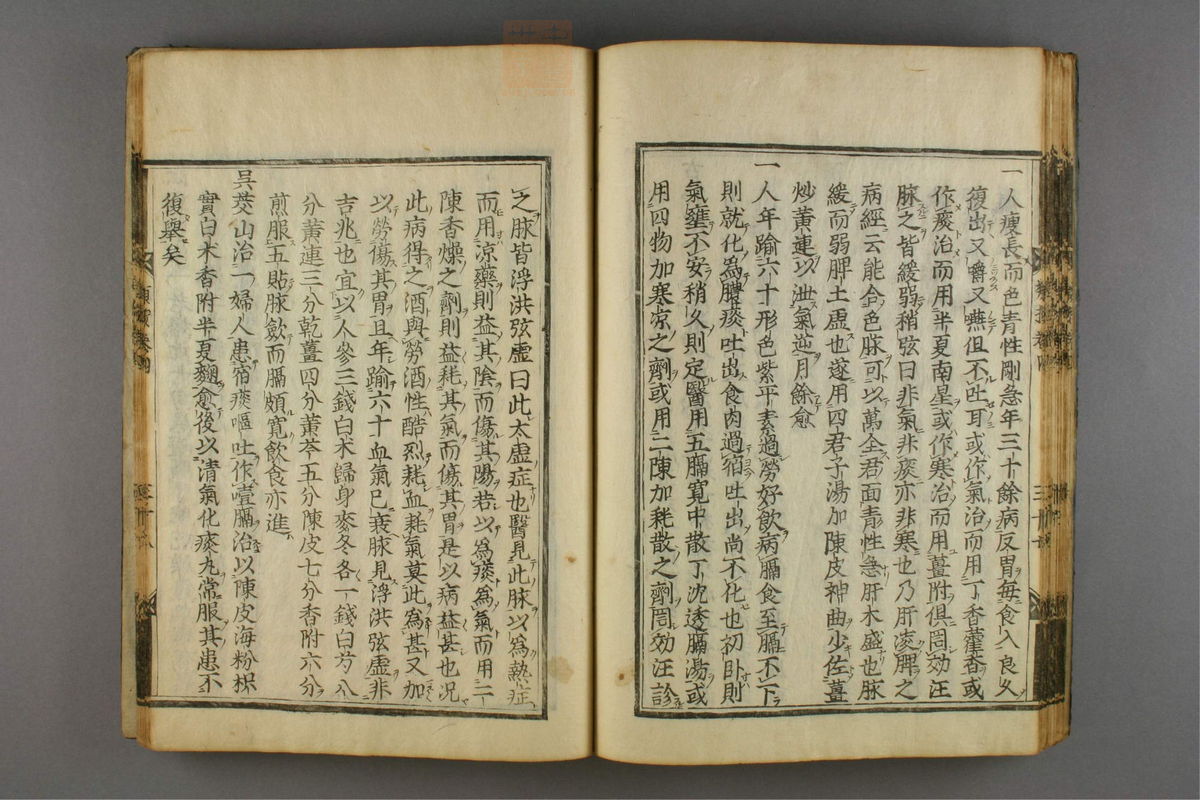 一人瘦長而色青性剛急年三十餘病反胃每食入良久
復出又嚼又嚥但不吐耳或作氣治而用丁香藿香或
作痰治而用半夏南星或作寒治而用薑附俱罔効汪
脉之皆緩弱稍弦曰非氣非痰亦非寒也乃肝凌脾之
病經云能合色脉可以萬全君面青性急肝木盛也脉
緩而弱脾土虛也遂用四君子湯加陳皮神曲少佐薑
炒黃連以泄氣逆月餘愈
一人年踰六十形色紫平素過勞好飲病膈食至膈不下
則就化爲膿痰吐出食肉過宿吐出尚不化也初卧則
氣壅不安稍久則定醫用五膈寬中散丁沈透膈湯或
用四物加寒凉之劑或用二陳加耗散之劑罔効汪診
之脉皆浮洪弦虛曰此太虛症也醫見此脉以爲熱症
而用凉藥則益其陰而傷其陽若以爲痰爲氣而用二
陳香燥之劑則益耗其氣而傷其胃是以病益甚也况
此病得之酒與勞酒性酷烈耗血耗氣莫此爲甚又加
以勞傷其胃且年踰六十血氣已衰脉見浮洪弦虛非
吉兆也宜以人參三錢白术歸身麥冬各一錢白芍八
分黃連三分乾薑四分黃芩五分陳皮七分香附六分
煎服五貼脉歛而膈頗寬飲食亦進
吳茭山治一婦人患宿痰嘔吐作噎膈治以陳皮海粉枳
實白术香附半夏麯愈後以清氣化痰丸常服其患不
復舉矣